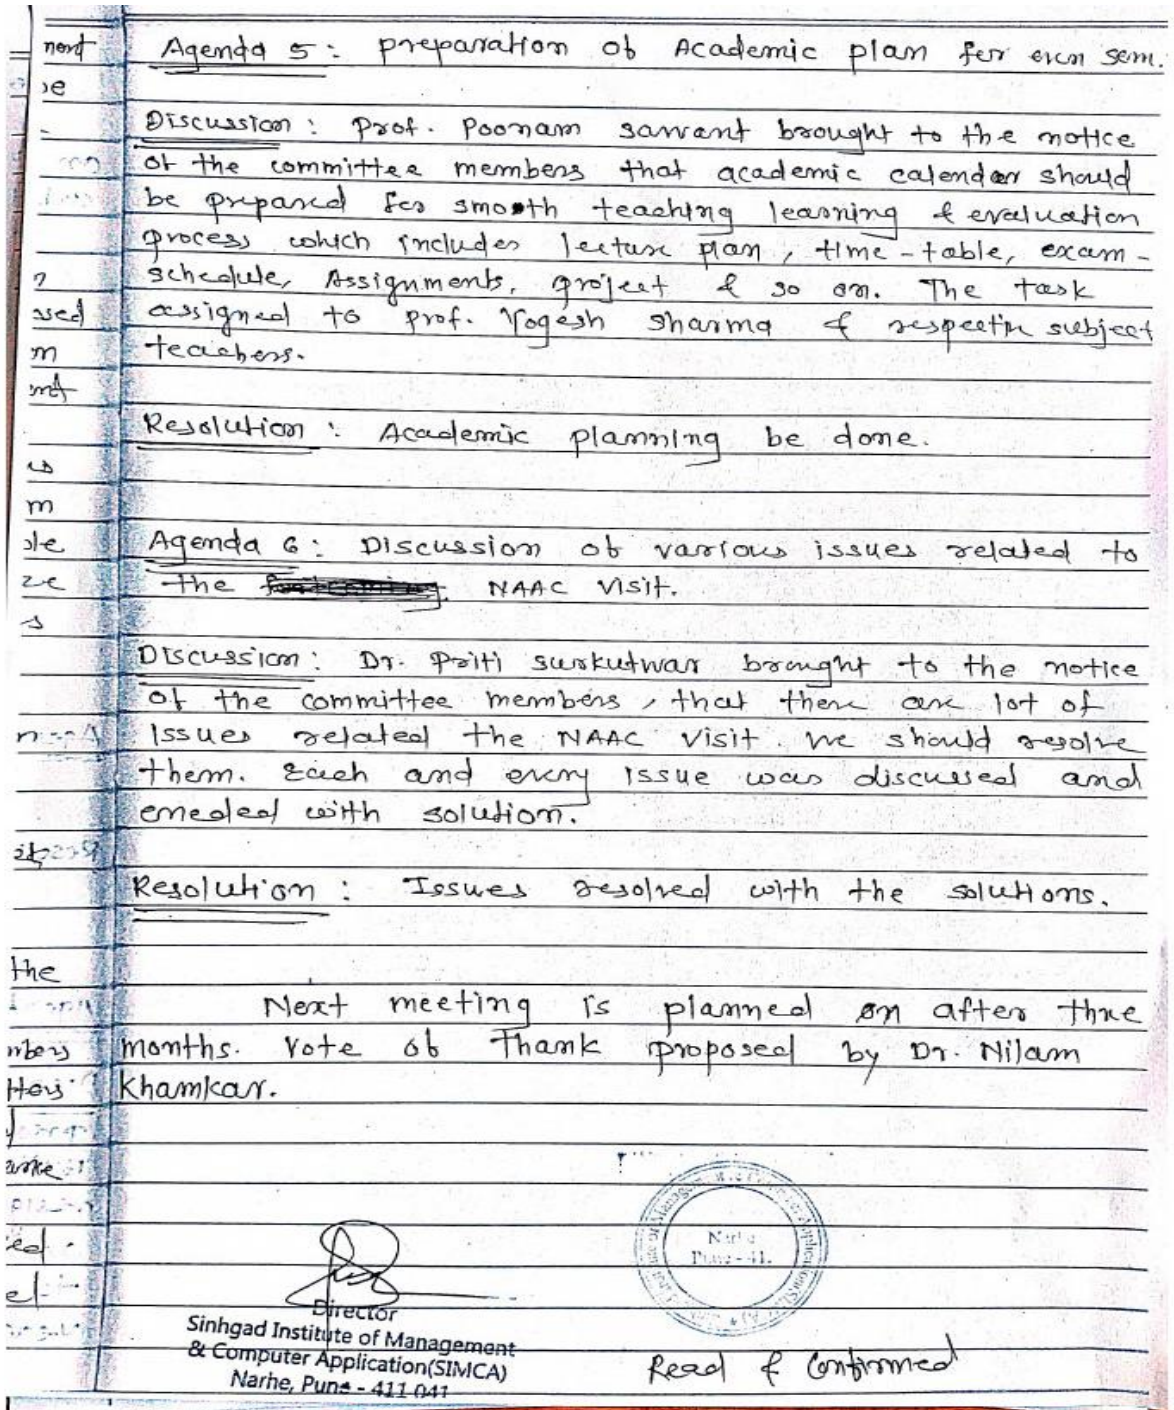 Agenda 5 : preparation of Academic plan for even sem.
Discussion : Prof. Poonam sawant brought to the notice
of the committee members that academic calendar should
be prepared for smooth teaching learning & evaluation
process which includes lecture plan, time-table, exam-
schedule, Assignments, project & so on. The task
assigned to prof. Yogesh Sharma & respective subject
teachers.
Resolution : Academic planning be done.
Agenda 6 : Discussion of various issues related to
the NAAC visit.
Discussion : Dr. Priti surkutwar brought to the notice
of the committee members, that there are lot of
issues related the NAAC visit. We should resolve
them. Each and every issue was discussed and
eneded with solution.
Resolution : Issues resolved with the solutions.
Next meeting is planned on after three
months. Vote of Thank proposed by Dr. Nilam
Khamkar.
Director
Sinhgad Institute of Management
& Computer Application(SIMCA)
Narhe, Pune - 411 041
Narhe
Pune - 41.
Read & Confirmed